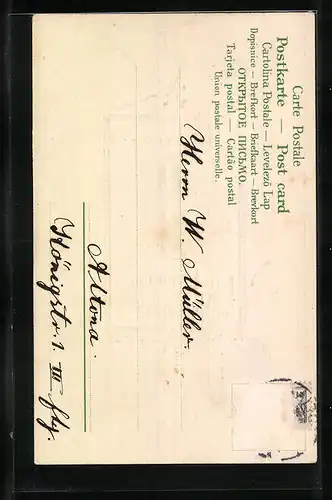 Carte Postale
Postkarte — Post card
Cartolina Postale — Levelező Lap
Dopisnice — Brefkort — Briefkaart — Brevkort
ОТКРЫТОЕ ПИСЬМО.
Tarjeta postal — Cartão postal
Union postale universelle.
Herrn W. Müller.
Altona.
Königstr. 1. III Etg.